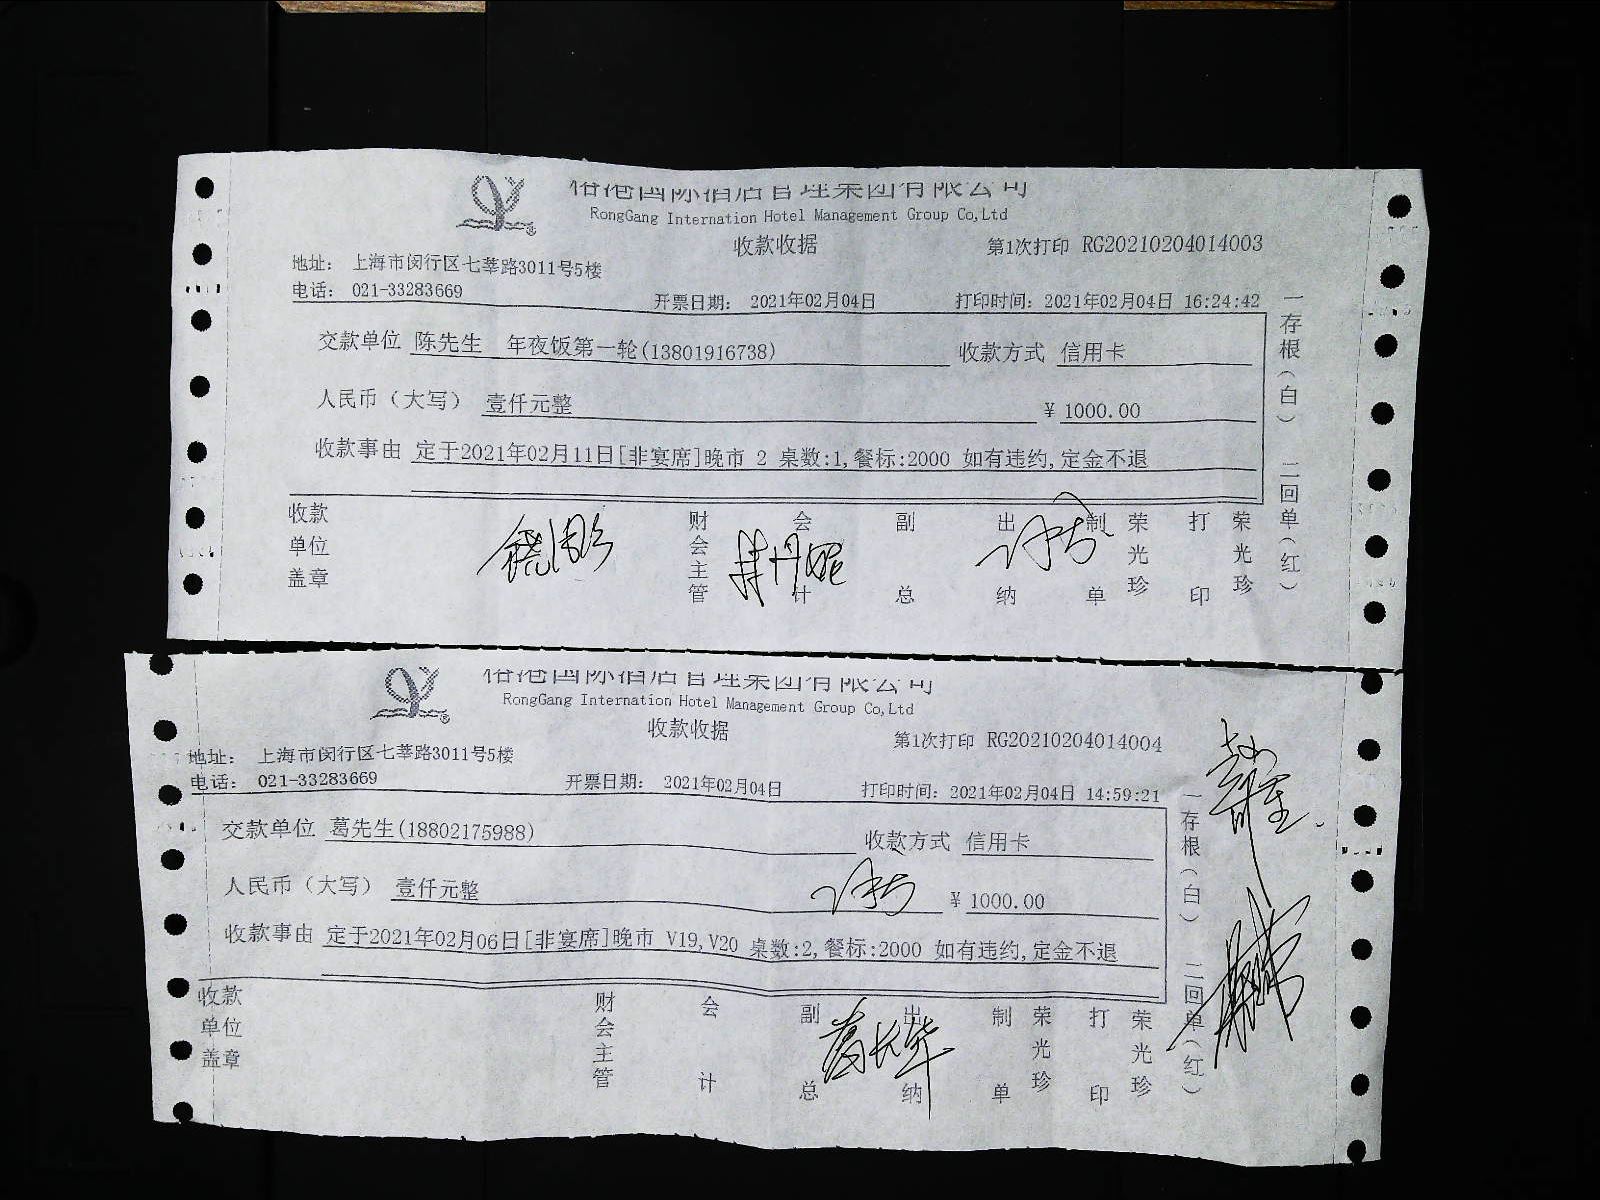 国际酒店管理集团有限公司
RongGang Internation Hotel Management Group Co,Ltd
收款收据
第1次打印 RG20210204014003
地址: 上海市闵行区七莘路3011号5楼
电话: 021-33283669
开票日期: 2021年02月04日
打印时间: 2021年02月04日 16:24:42
交款单位 陈先生 年夜饭第一轮(13801916738)
收款方式 信用卡
人民币(大写) 壹仟元整
¥ 1000.00
收款事由 定于2021年02月11日[非宴席]晚市 2 桌数:1,餐标:2000 如有违约,定金不退
收款单位盖章
财会主管
会计
副总
出纳
制单
荣光珍
打印
荣光珍
一存根(白) 二回单(红)
国际酒店管理集团有限公司
RongGang Internation Hotel Management Group Co,Ltd
收款收据
第1次打印 RG20210204014004
地址: 上海市闵行区七莘路3011号5楼
电话: 021-33283669
开票日期: 2021年02月04日
打印时间: 2021年02月04日 14:59:21
交款单位 葛先生(18802175988)
收款方式 信用卡
人民币(大写) 壹仟元整
¥ 1000.00
收款事由 定于2021年02月06日[非宴席]晚市 V19,V20 桌数:2,餐标:2000 如有违约,定金不退
收款单位盖章
财会主管
会计
副总
出纳
制单
荣光珍
打印
荣光珍
一存根(白) 二回单(红)